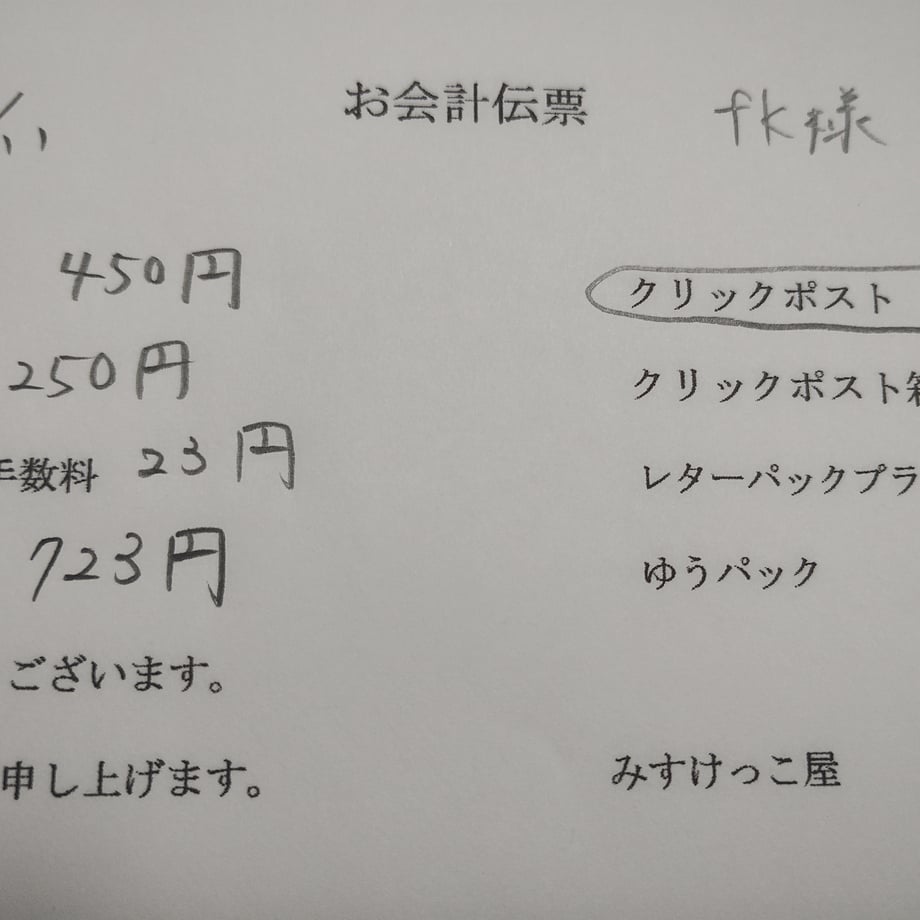 お会計伝票
fk様
450円
クリックポスト
250円
クリックポスト箱
手数料 23円
レターパックプラ
723円
ゆうパック
ございます。
申し上げます。
みすけっこ屋